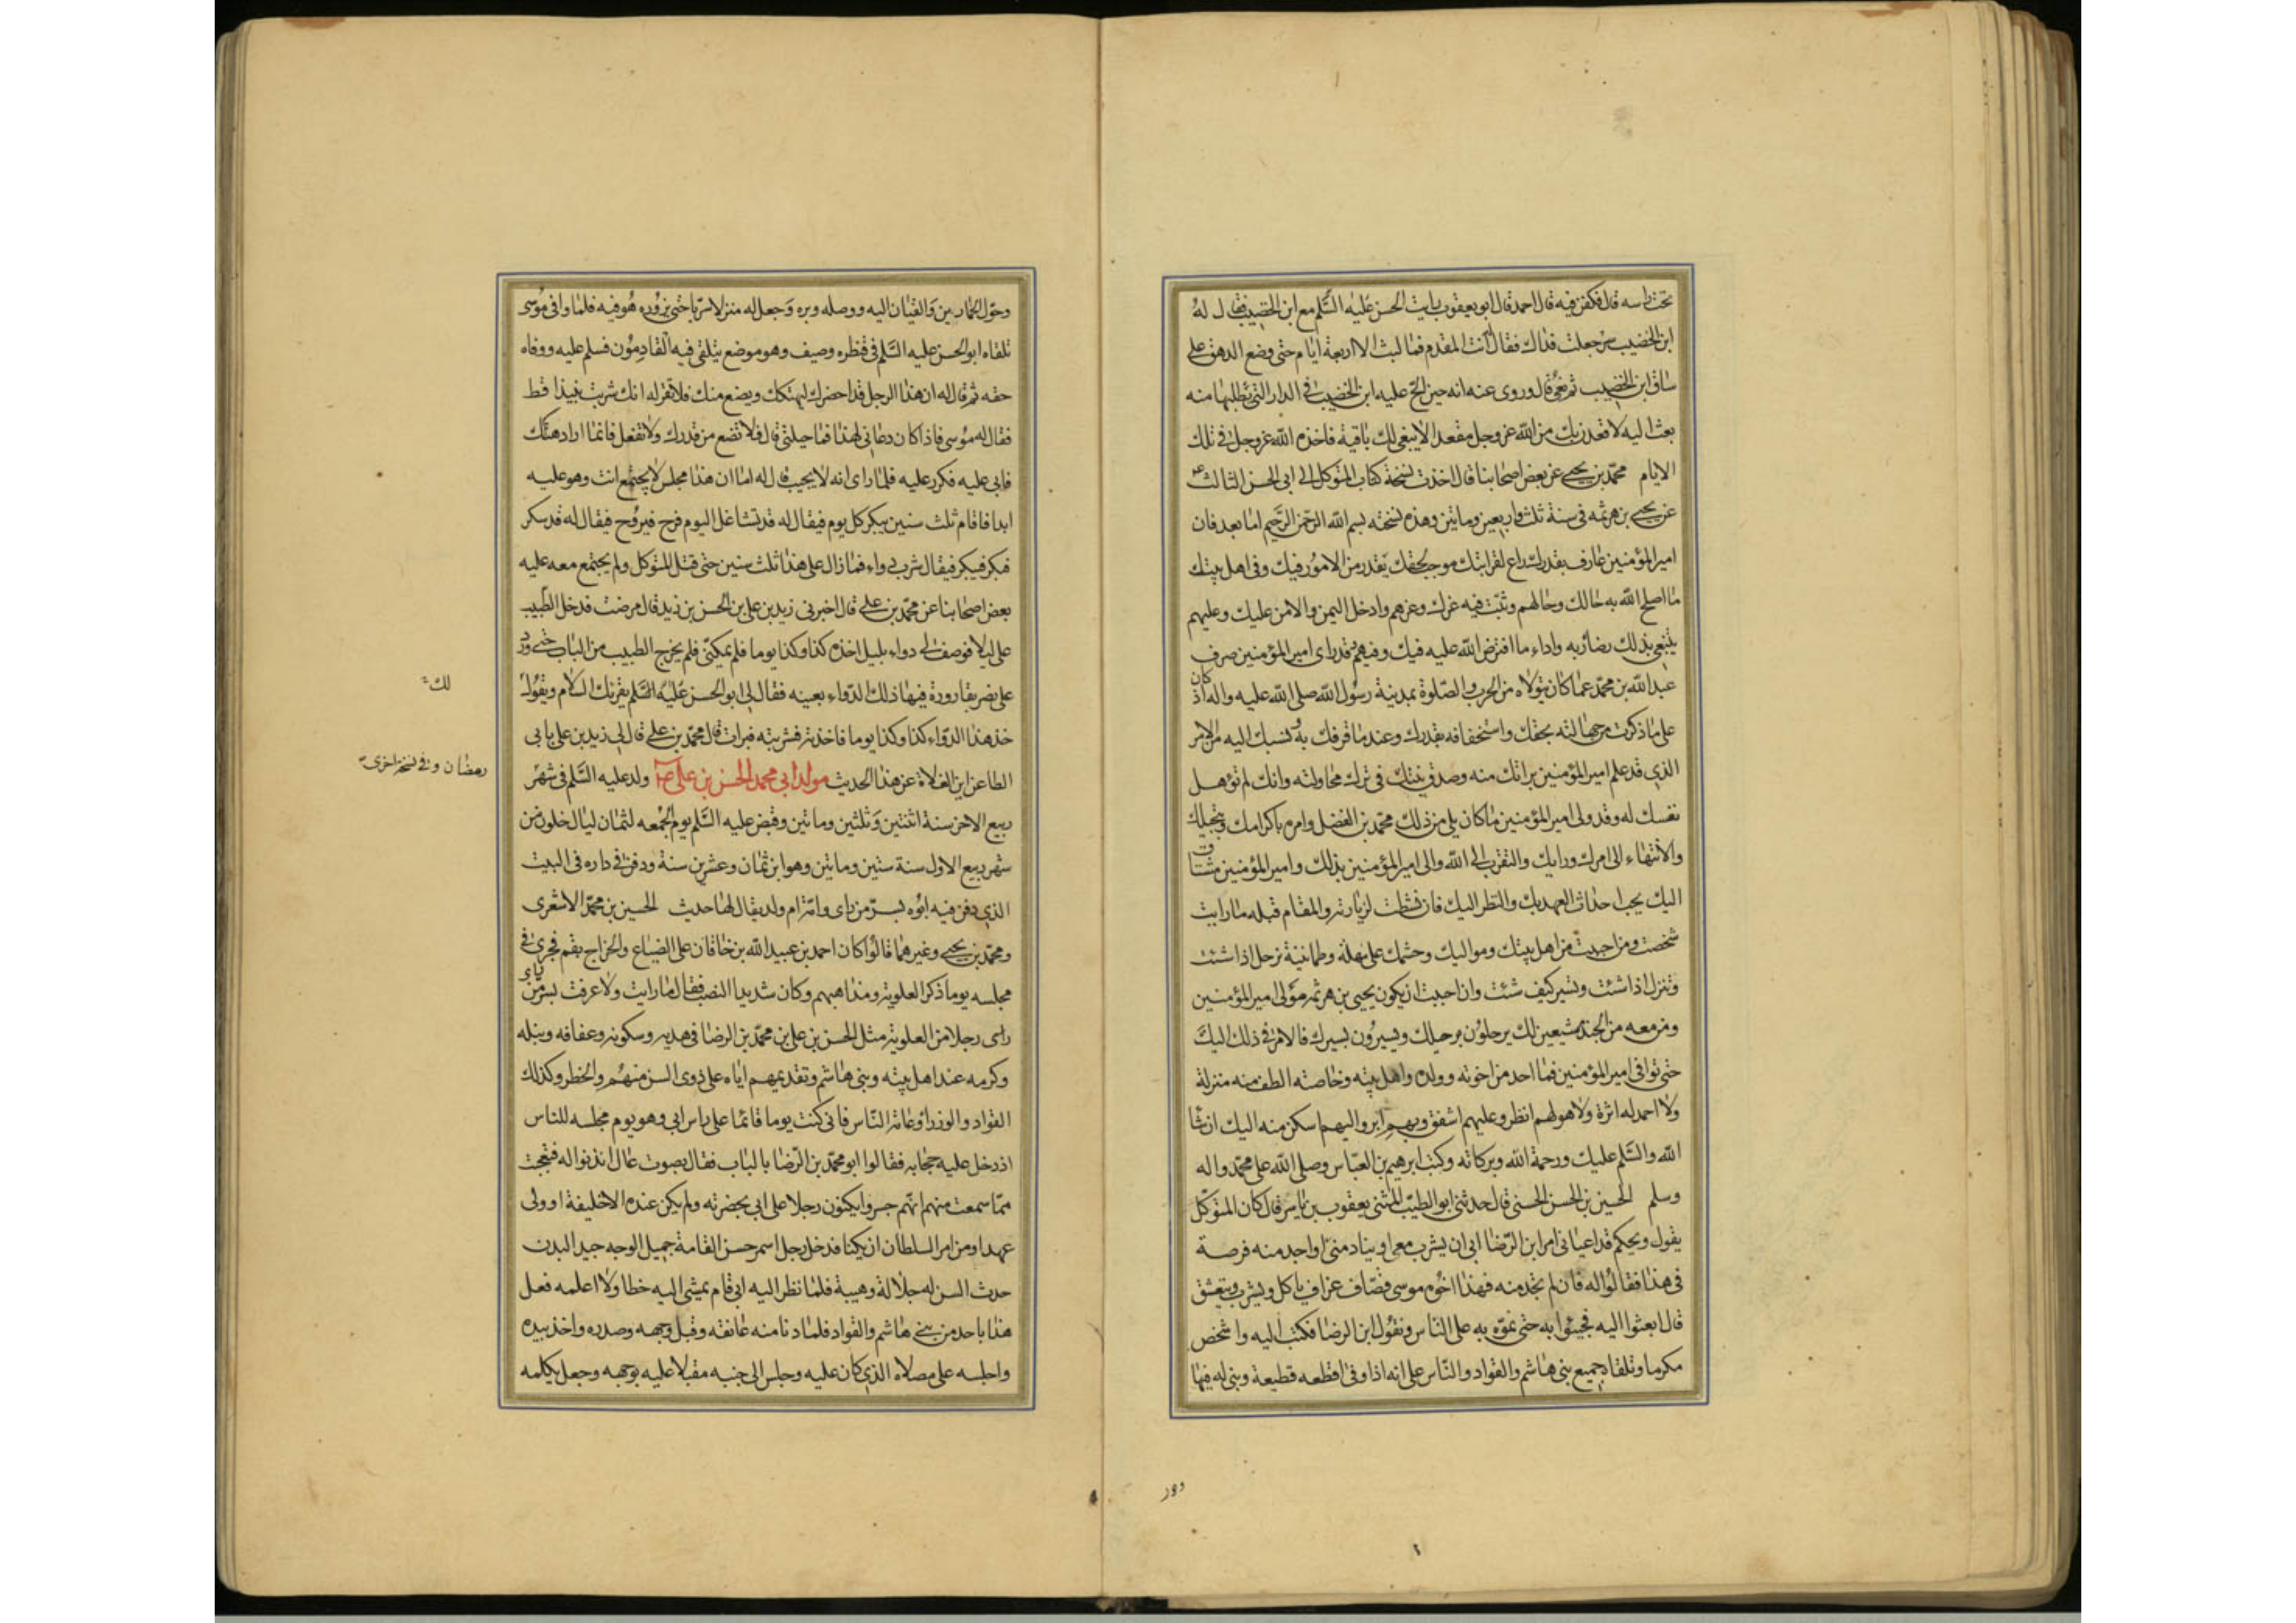 تحت راسه قال فكفن فيه قال احمد قال ابو يعقوب رايت ابا الحسن عليه السلم مع ابن الخضيب فقال له
ابن الخضيب سر جعلت فداك فقال انت المقدم فما لبث الا اربعة ايام حتى وضع الدهق على
ساق ابن الخضيب ثم نعى قال وروى عنه انه حين الح عليه ابن الخضيب فى الدار التى يطلبها منه
بعث اليه لاقعدن بك من الله عز وجل مقعدا لا يبقى لك باقية فاخذه الله عز وجل فى تلك
الايام محمد بن يحيى عن بعض اصحابنا قال اخذت نسخة كتاب المتوكل الى ابى الحسن الثالث ع
عن يحيى بن هرثمه فى سنة ثلث واربعين وماتين وهذه نسخته بسم الله الرحمن الرحيم اما بعد فان
امير المؤمنين عارف بقدرك راع لقرابتك موجب لحقك يقدر من الامور فيك وفى اهل بيتك
ما اصلح الله به حالك وحالهم وثبت فيه عزك وعزهم وادخل اليمن والامن عليك وعليهم
يبتغى بذلك رضا ربه واداء ما افترض الله عليه فيك وفيهم وقد راى امير المؤمنين صرف
عبد الله بن محمد عما كان يتولاه من الحرب والصلوة بمدينة رسول الله صلى الله عليه واله اذ كان
على ما ذكرت من جهالته بحقك واستخفافه بقدرك وعند ما قرفك به ونسبك اليه من الامر
الذى قد علم امير المؤمنين براتك منه وصدق نيتك فى ترك محاولته وانك لم تؤهل
نفسك له وقد ولى امير المؤمنين ما كان يلى من ذلك محمد بن الفضل وامره باكرامك وتبجيلك
والانتهاء الى امرك ورايك والتقرب الى الله والى امير المؤمنين بذلك وامير المؤمنين مشتاق
اليك يحب احداث العهد بك والنظر اليك فان نشطت لزيارته والمقام قبله ما رايت
شخصت ومن احببت من اهل بيتك ومواليك وحشمك على مهلة وطمانينة ترحل اذا شئت
وتنزل اذا شئت وتسير كيف شئت وان احببت ان يكون يحيى بن هرثمه مولى امير المؤمنين
ومن معه من الجند مشيعين لك يرحلون برحيلك ويسيرون بسيرك فالامر فى ذلك اليك
حتى توافى امير المؤمنين فما احد من اخوته وولده واهل بيته وخاصته الطف منه منزلة
ولا احمد له اثرة ولا هو لهم انظر وعليهم اشفق وبهم ابر واليهم اسكن منه اليك ان شا
الله والسلم عليك ورحمة الله وبركاته وكتب ابرهيم بن العباس وصلى الله على محمد واله
وسلم الحسين بن الحسن الحسنى قال حدثنى ابو الطيب المثنى يعقوب بن ياسر قال كان المتوكل
يقول ويحكم قد اعيانى امر ابن الرضا ابى ان يشرب معى او ينادمنى او اجد منه فرصة
فى هذا فقالوا له فان لم تجد منه فهذا اخوه موسى قصاف عزاف ياكل ويشرب ويتعشق
قال ابعثوا اليه فجيئوا به حتى نموه به على الناس ونقول ابن الرضا فكتب اليه واشخص
مكرما وتلقاه جميع بنى هاشم والقواد والناس على انه اذا وفى اقطعه قطيعة وبنى له فيها
وحول
وحول الخمارين والقيان اليه ووصله وبره وجعل له منزلا سريا حتى يزوره هو فيه فلما وافى موسى
تلقاه ابو الحسن عليه السلم فى قنطره وصيف وهو موضع يتلقى فيه القادمون فسلم عليه ووفاه
حقه ثم قال له ان هذا الرجل قد احضرك ليهتكك ويضع منك فلا تقر له انك شربت نبيذا قط
فقال له موسى فاذا كان دعانى لهذا فما حيلتى قال فلا تضع من قدرك ولا تفعل فانما اراد هتكك
فابى عليه فكرر عليه فلما راى انه لا يجيب قال له اما ان هذا مجلس لا يجتمع انت وهو عليه
ابدا فاقام ثلث سنين يبكر كل يوم فيقال له قد تشاغل اليوم فرح فيروح فيقال له قد سكر
فبكر فيبكر فيقال شرب دواء فما زال على هذا ثلث سنين حتى قتل المتوكل ولم يجتمع معه عليه
بعض اصحابنا عن محمد بن على قال اخبرنى زيد بن على بن الحسن بن زيد قال مرضت فدخل الطبيب
على ليلا فوصف لى دواء بليل اخذه كذا وكذا يوما فلم يمكنى فلم يخرج الطبيب من الباب حتى ورد
على نصر بقارورة فيها ذلك الدواء بعينه فقال لى ابو الحسن عليه السلم يقرئك السلام ويقول
لك
خذ هذا الدواء كذا وكذا يوما فاخذته فشربته فبرات قال محمد بن على قال لى زيد بن على يابى
الطاعن اين الغلاة عن هذا الحديث مولد ابى محمد الحسن بن على ولد عليه السلم فى شهر
رمضان وفى نسخة اخرى
ربيع الاخر سنة اثنتين وثلثين وماتين وقبض عليه السلم يوم الجمعه لثمان ليال خلون من
شهر ربيع الاول سنة ستين وماتين وهو ابن ثمان وعشرين سنة ودفن فى داره فى البيت
الذى دفن فيه ابوه بسر من راى وامه ام ولد يقال لها حديث الحسين بن محمد الاشعرى
ومحمد بن يحيى وغيرهما قالوا كان احمد بن عبيد الله بن خاقان على الضياع والخراج بقم فجرى فى
مجلسه يوما ذكر العلوية ومذاهبهم وكان شديد النصب فقال ما رايت ولا عرفت بسر من راى
راى رجلا من العلوية مثل الحسن بن على بن محمد بن الرضا فى هديه وسكونه وعفافه ونبله
وكرمه عند اهل بيته وبنى هاشم وتقديمهم اياه على ذوى السن منهم والخطر وكذلك
القواد والوزراء وعامة الناس فانى كنت يوما قائما على راس ابى وهو يوم مجلسه للناس
اذ دخل عليه حجابه فقالوا ابو محمد بن الرضا بالباب فقال بصوت عال ائذنوا له فتعجبت
مما سمعت منهم انهم جسروا يكنون رجلا على ابى بحضرته ولم يكن عنده الا خليفة او ولى
عهد او من امر السلطان ان يكنا فدخل رجل اسمر حسن القامة جميل الوجه جيد البدن
حدث السن له جلالة وهيبة فلما نظر اليه ابى قام يمشى اليه خطا ولا اعلمه فعل
هذا باحد من بنى هاشم والقواد فلما دنا منه عانقه وقبل وجهه وصدره واخذ بيده
واجلسه على مصلاه الذى كان عليه وجلس الى جنبه مقبلا عليه بوجهه وجعل يكلمه